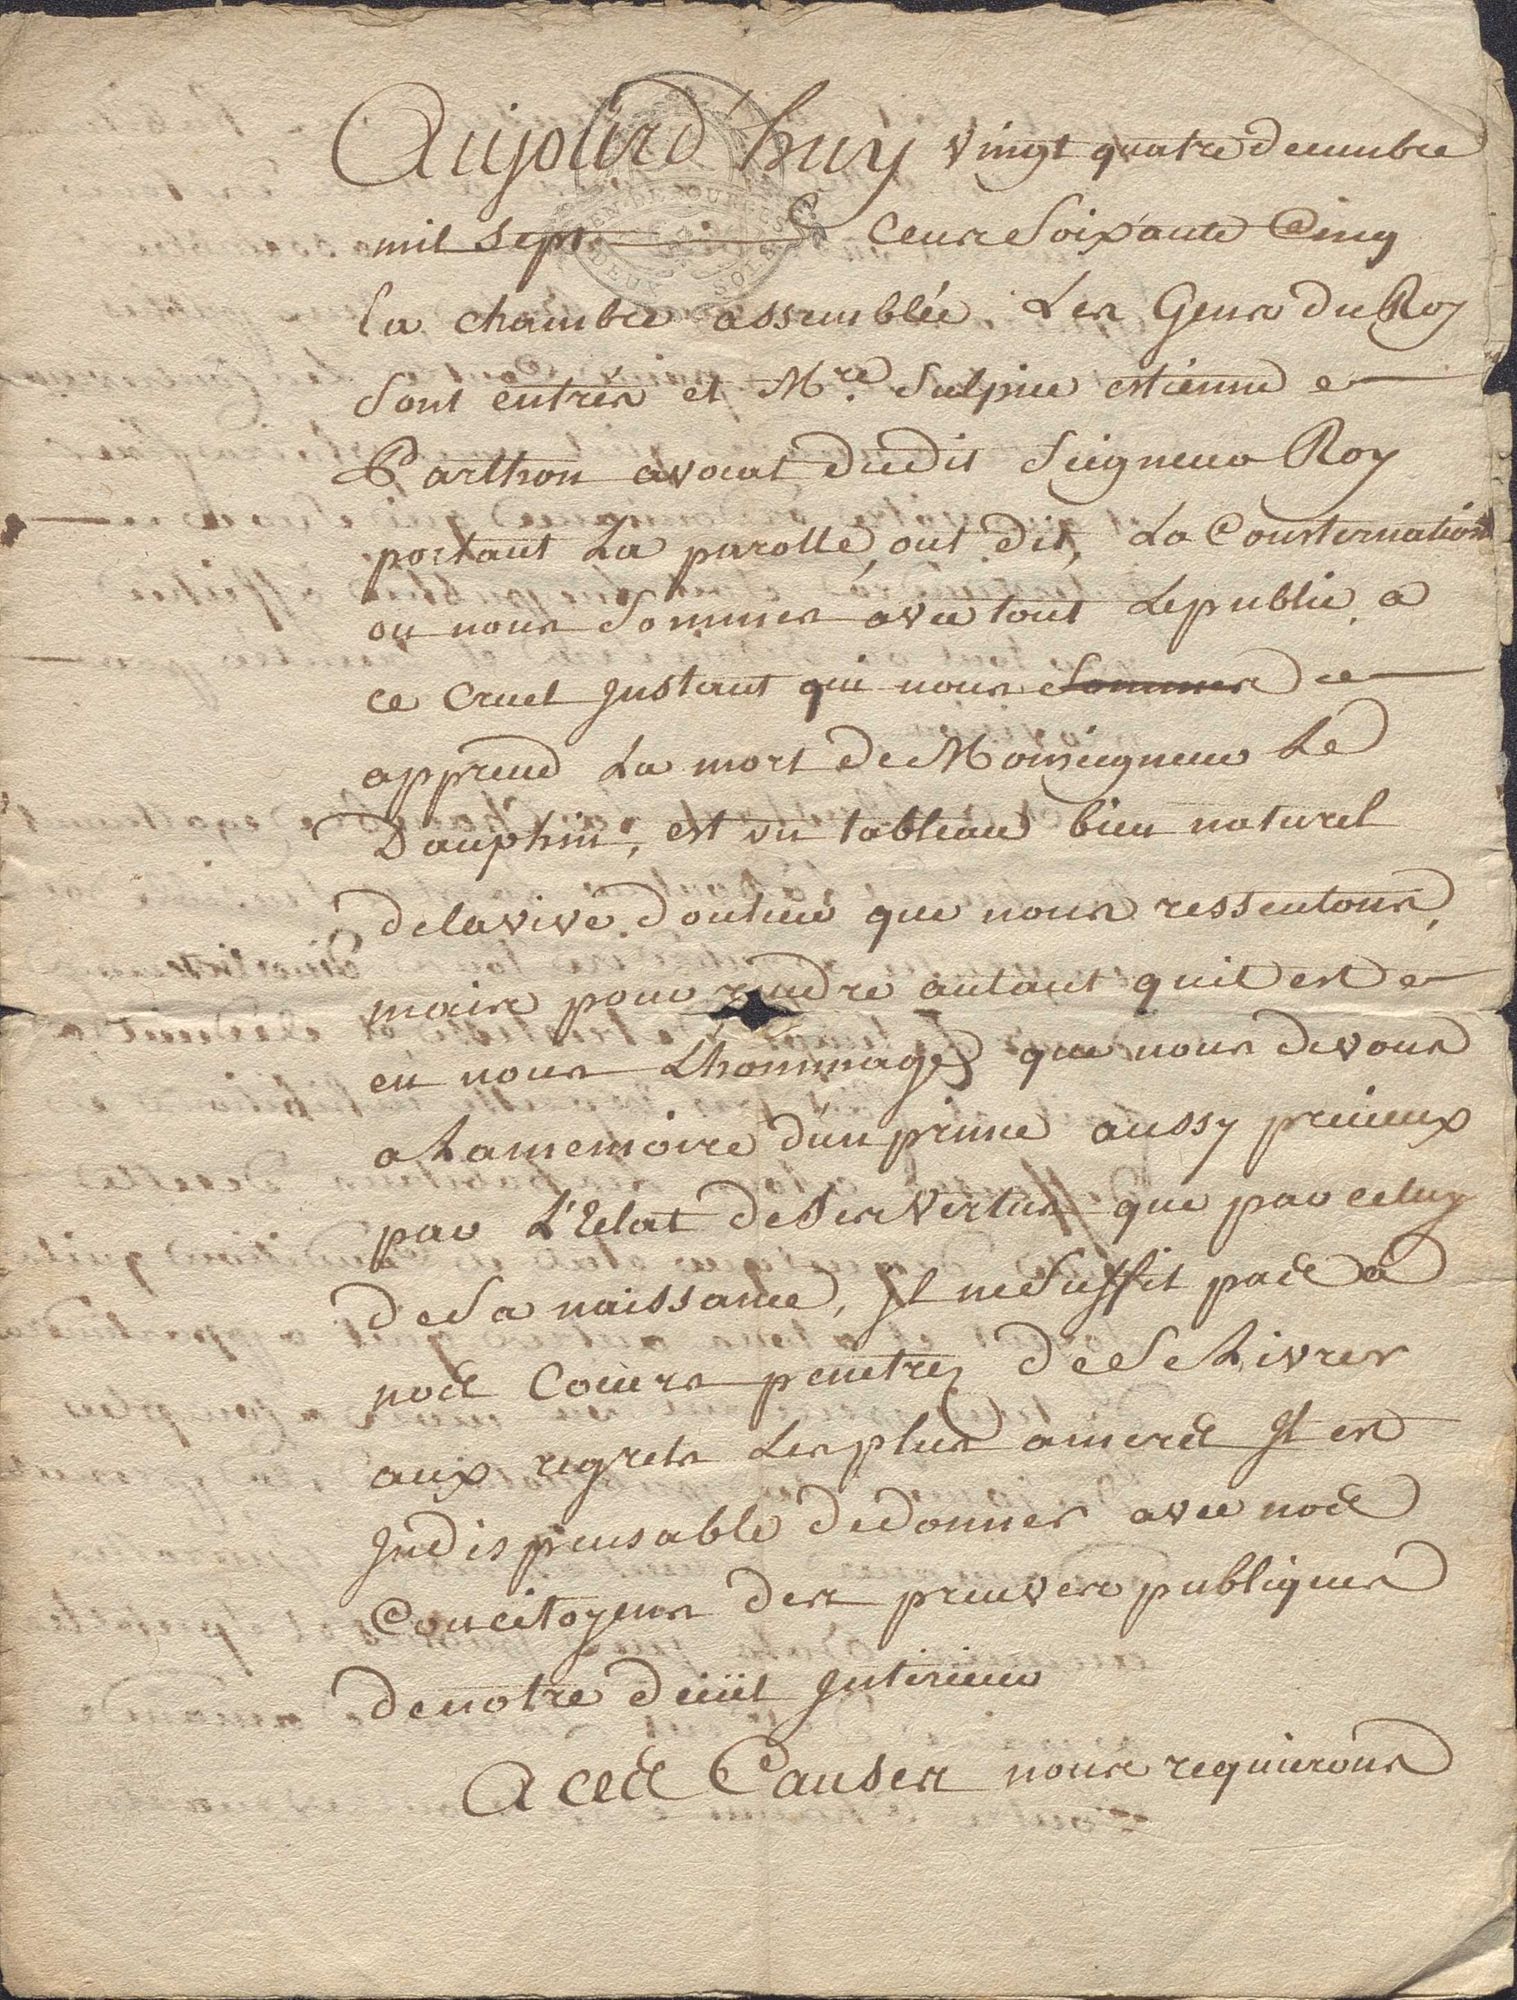 Aujourd'huy vingt quatre decembre
mil sept cens soixante Cinq
GEN DE BOURGES
DEUX SOLS
la chambre assemblée. Les Gens du Roy
sont entrés et Mre. Sulpice estienne
Parthon avocat dudit Seigneur Roy
portant La parolle, ont dit, La Consternation
ou nous sommes avec tout Le public, a
ce cruel Instant qui nous sommes
apprend La mort de Monseigneur Le
Dauphin, est un tableau bien naturel
de la vive douleur que nous ressentons,
mais pour rendre autant quil est
en nous Lhommage que nous devons
a La memoire d'un prince aussy precieux
par L'Eclat de ses Vertus que par celuy
de Sa naissance, Il ne Suffit pas a
nos Coeurs penetrez de Se Livrer
aux regrets Les plus amers Il est
Indispensable de donner avec nos
Concitoyens des preuves publiques
de notre deüil Interieur
A ces Causes nous requierons